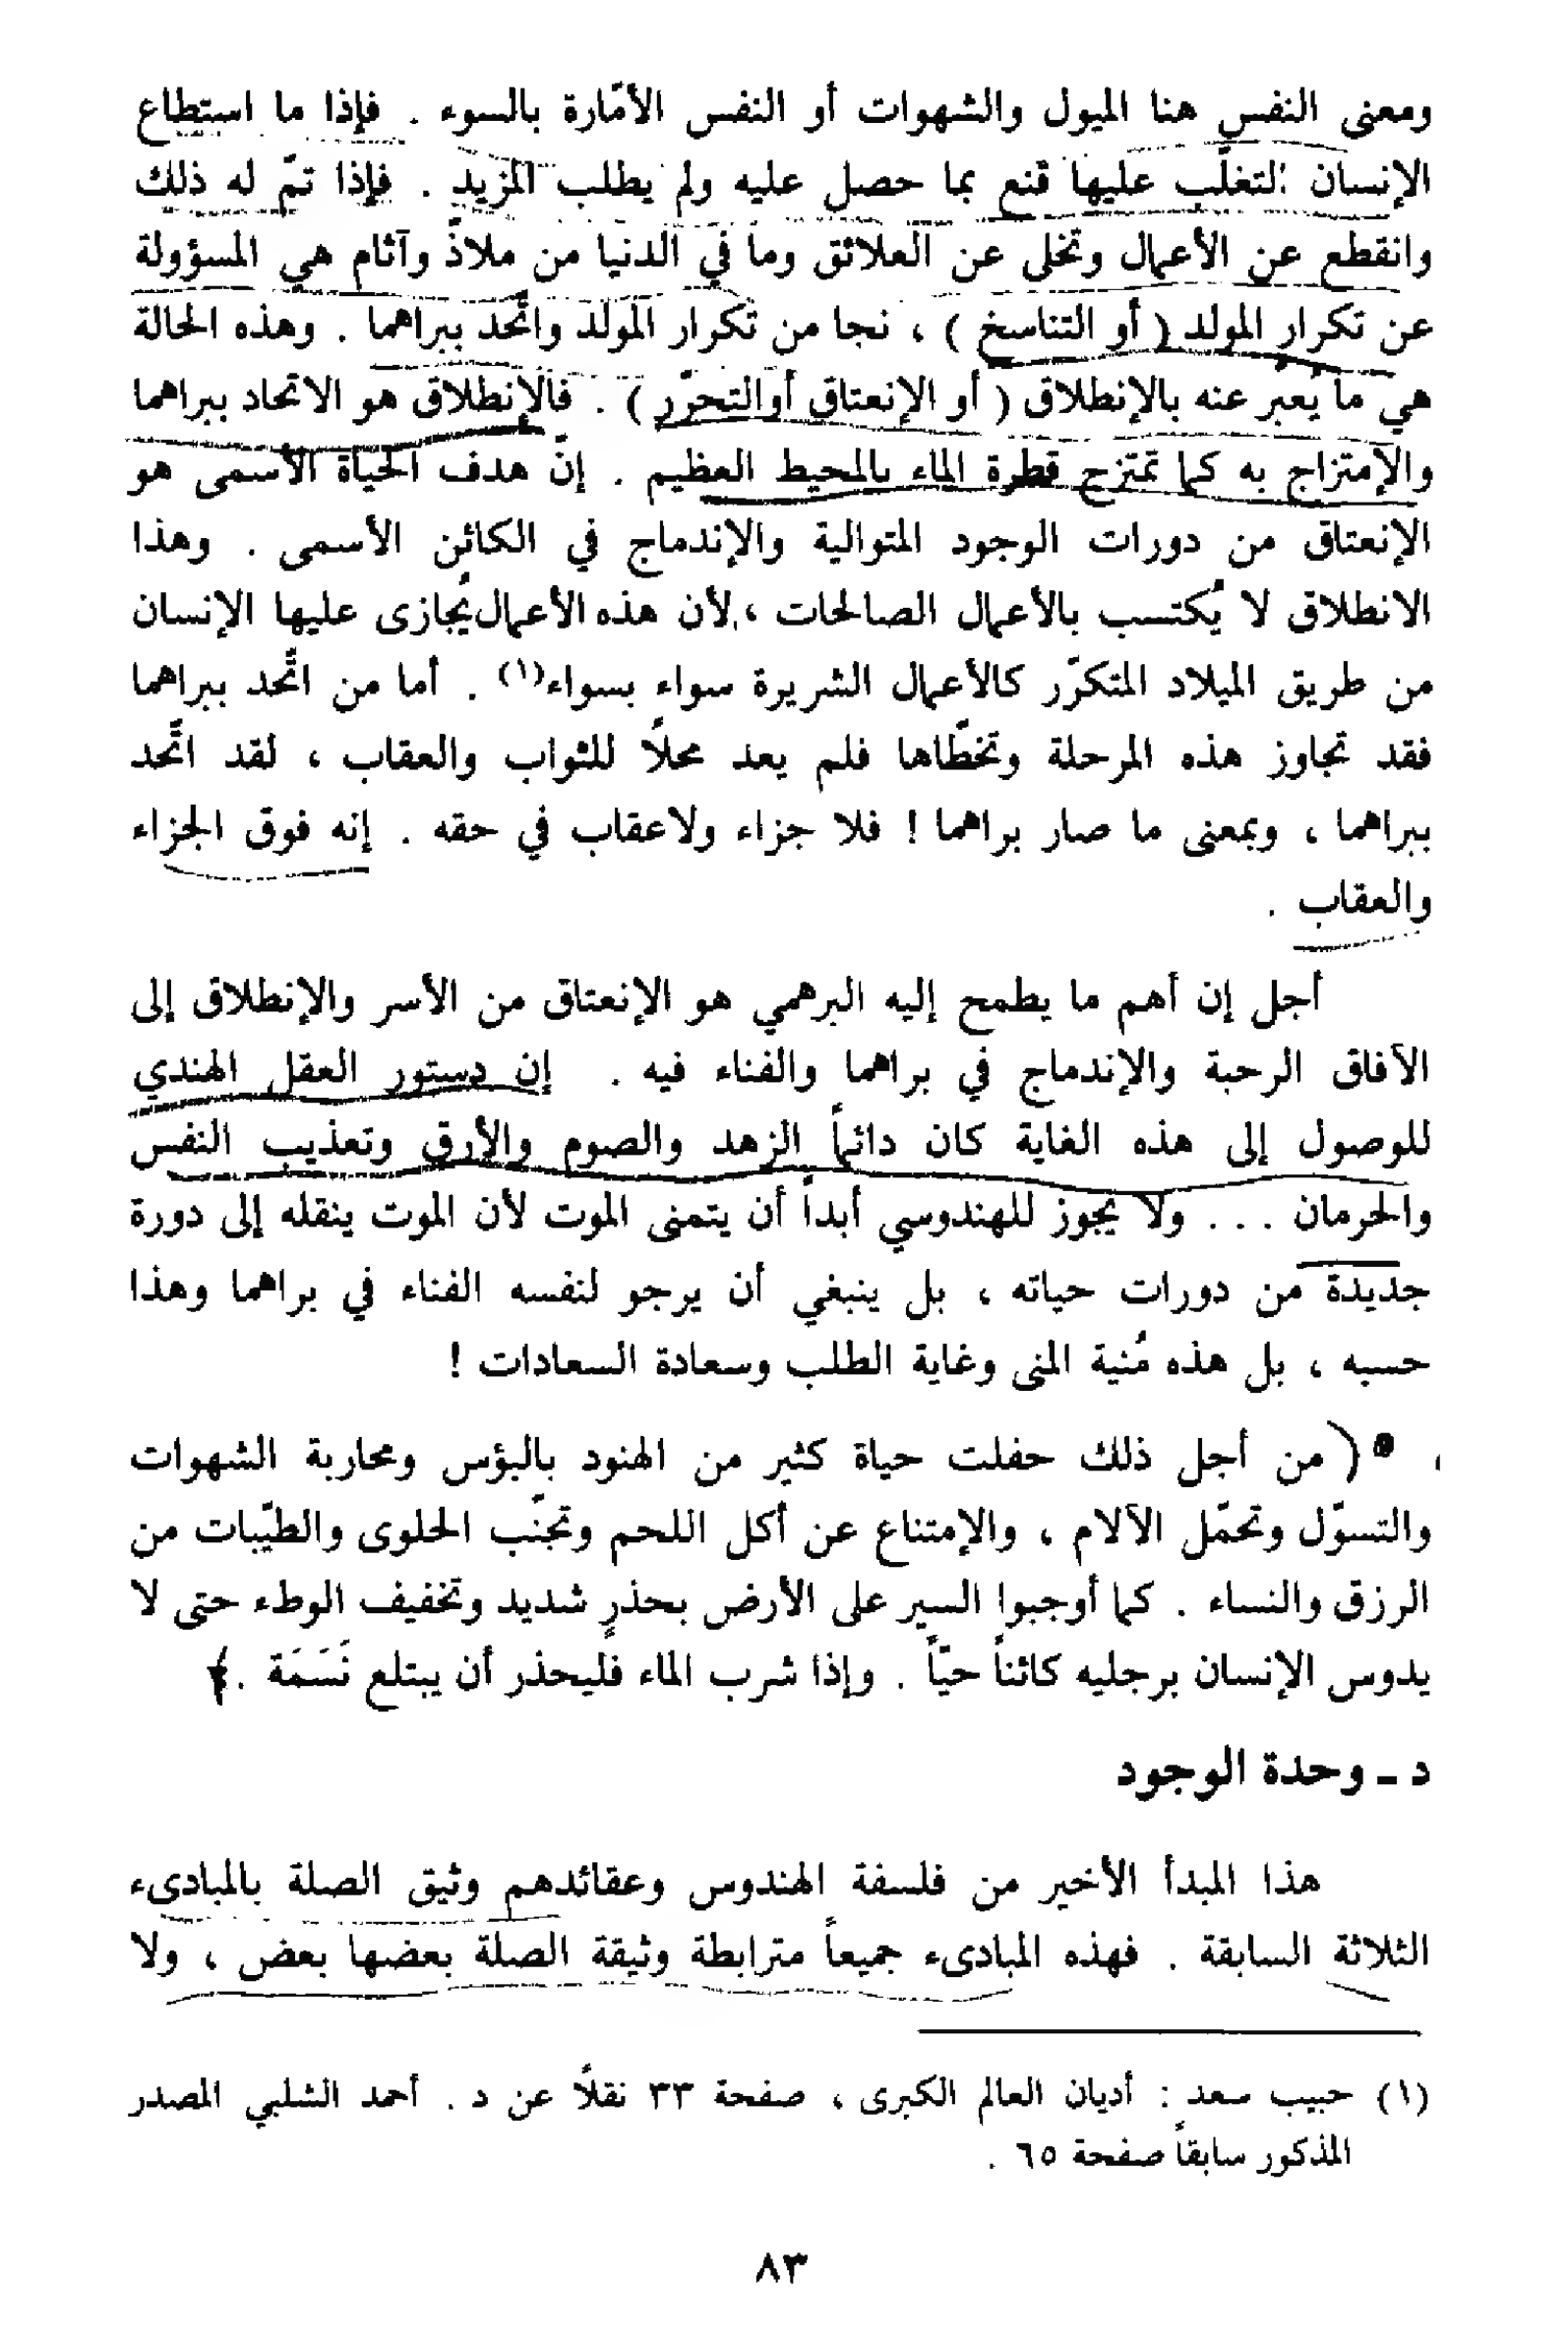 ومعنى النفس هنا الميول والشهوات أو النفس الأمّارة بالسوء . فإذا ما استطاع
الإنسان التغلّب عليها قنع بما حصل عليه ولم يطلب المزيد . فإذا تمّ له ذلك
وانقطع عن الأعمال وتخلى عن العلائق وما في الدنيا من ملاذّ وآثام هي المسؤولة
عن تكرار المولد ( أو التناسخ ) ، نجا من تكرار المولد واتّحد ببراهما . وهذه الحالة
هي ما يُعبّر عنه بالإنطلاق ( أو الإنعتاق أوالتحرّر ) . فالإنطلاق هو الاتحاد ببراهما
والإمتزاج به كما تمتزج قطرة الماء بالمحيط العظيم . إنّ هدف الحياة الأسمى هو
الإنعتاق من دورات الوجود المتوالية والإندماج في الكائن الأسمى . وهذا
الانطلاق لا يُكتسب بالأعمال الصالحات ، لأن هذه الأعمال يُجازى عليها الإنسان
من طريق الميلاد المتكرّر كالأعمال الشريرة سواء بسواء(١) . أما من اتّحد ببراهما
فقد تجاوز هذه المرحلة وتخطّاها فلم يعد محلاً للثواب والعقاب ، لقد اتّحد
ببراهما ، وبمعنى ما صار براهما ! فلا جزاء ولاعقاب في حقه . إنه فوق الجزاء
والعقاب .
أجل إن أهم ما يطمح إليه البرهمي هو الإنعتاق من الأسر والإنطلاق إلى
الآفاق الرحبة والإندماج في براهما والفناء فيه . إن دستور العقل الهندي
للوصول إلى هذه الغاية كان دائماً الزهد والصوم والأرق وتعذيب النفس
والحرمان . . . ولا يجوز للهندوسي أبداً أن يتمنى الموت لأن الموت ينقله إلى دورة
جديدة من دورات حياته ، بل ينبغي أن يرجو لنفسه الفناء في براهما وهذا
حسبه ، بل هذه مُنية المنى وغاية الطلب وسعادة السعادات !
( من أجل ذلك حفلت حياة كثير من الهنود بالبؤس ومحاربة الشهوات
والتسوّل وتحمّل الآلام ، والإمتناع عن أكل اللحم وتجنّب الحلوى والطيّبات من
الرزق والنساء . كما أوجبوا السير على الأرض بحذرٍ شديد وتخفيف الوطء حتى لا
يدوس الإنسان برجليه كائناً حيّاً . وإذا شرب الماء فليحذر أن يبتلع نَسَمَة .
د ـ وحدة الوجود
هذا المبدأ الأخير من فلسفة الهندوس وعقائدهم وثيق الصلة بالمبادىء
الثلاثة السابقة . فهذه المبادىء جميعاً مترابطة وثيقة الصلة بعضها بعض ، ولا
(١) حبيب سعد : أديان العالم الكبرى ، صفحة ٣٣ نقلاً عن د . أحمد الشلبي المصدر
المذكور سابقاً صفحة ٦٥ .
٨٣